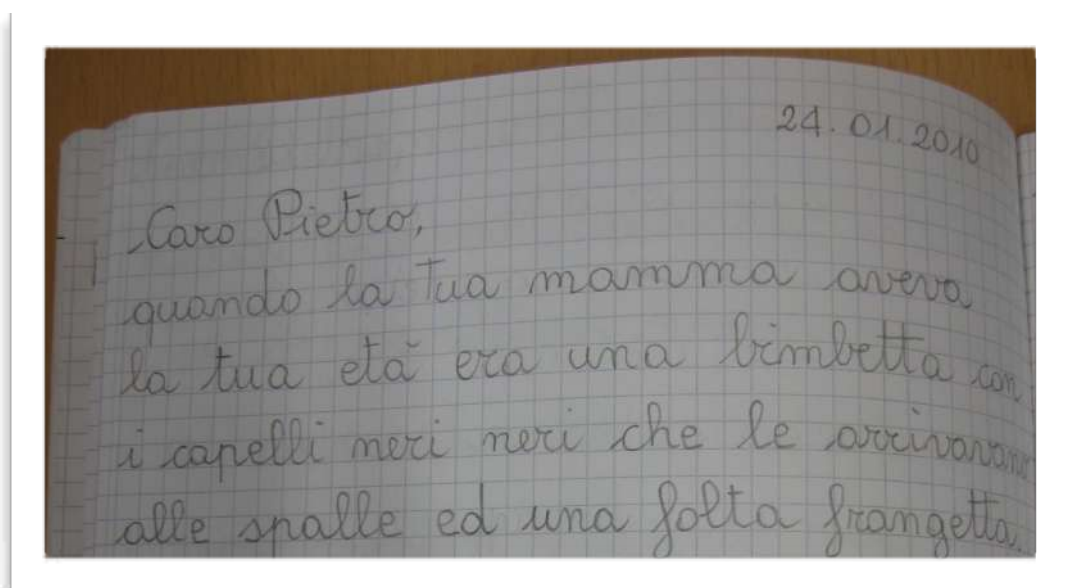 24.01.2010
Caro Pietro,
quando la tua mamma aveva
la tua età era una bimbetta con
i capelli neri neri che le arrivavano
alle spalle ed una folta frangetta.